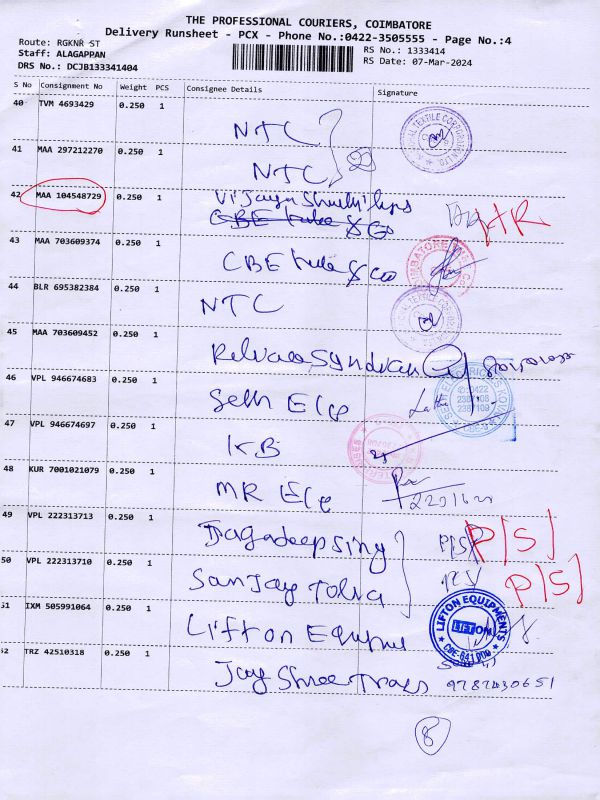 THE PROFESSIONAL COURIERS, COIMBATORE
Delivery Runsheet - PCX - Phone No.:0422-3505555 - Page No.:4
Route: RGKNR ST
RS No.: 1333414
Staff: ALAGAPPAN
RS Date: 07-Mar-2024
DRS No.: DCJB133341404
S No Consignment No Weight PCS Consignee Details Signature
40 TVM 4693429 0.250 1
NTC
41 MAA 297212270 0.250 1
NTC
42 MAA 104548729 0.250 1
Vijaya
CBE & Co
43 MAA 703609374 0.250 1
CBE & Co
44 BLR 695382384 0.250 1
NTC
45 MAA 703609452 0.250 1
46 VPL 946674683 0.250 1
Seth Ele
0422
2387108
2387109
47 VPL 946674697 0.250 1
KB
48 KUR 7001021079 0.250 1
MR Ele
49 VPL 222313713 0.250 1
Jagadeepsing P/S P/S
50 VPL 222313710 0.250 1
Sanjay P/S
51 IXM 505991064 0.250 1
Lifton
LIFTON EQUIPMENTS
LIFTON
52 TRZ 42510318 0.250 1
Jay Shree 9787430651
8